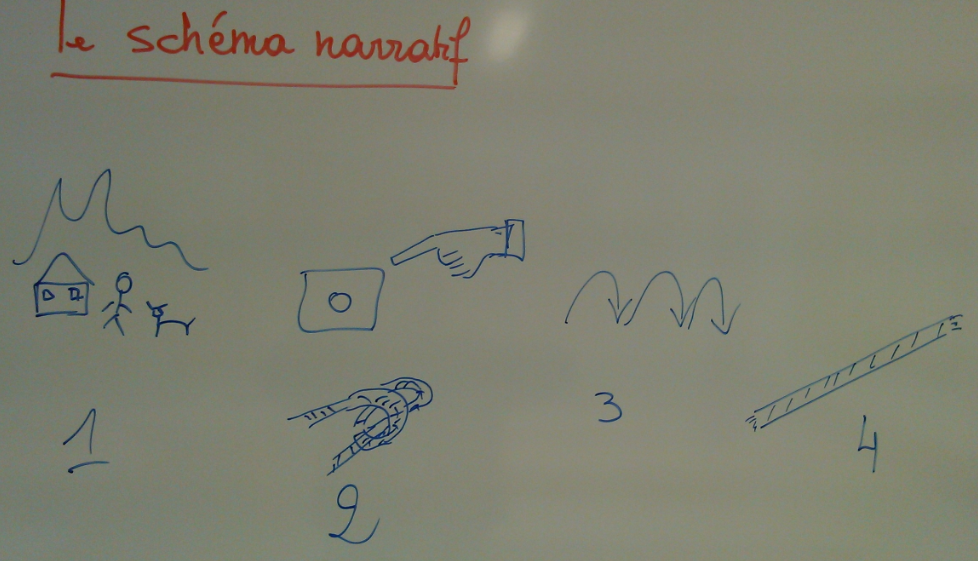 le schéma narratif
1
2
3
4